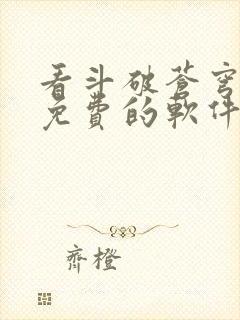 看斗破苍穹
免费的軟件
齊橙